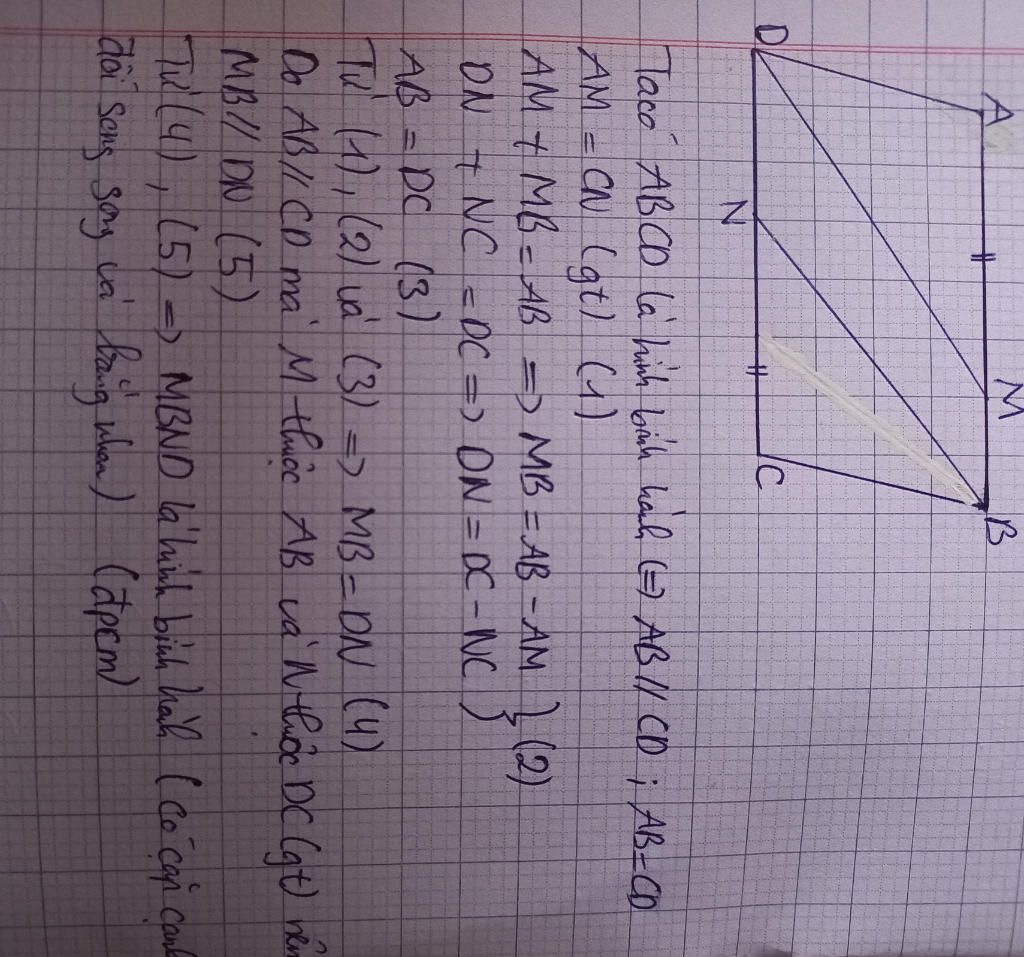 A M B
D N C
Ta có ABCD là hình bình hành (=) AB // CD ; AB = CD
AM = CN (gt) (1)
AM + MB = AB => MB = AB - AM } (2)
DN + NC = DC => DN = DC - NC
AB = DC (3)
Từ (1), (2) và (3) => MB = DN (4)
Do AB // CD mà M thuộc AB và N thuộc DC (gt) nên
MB // DN (5)
Từ (4), (5) => MBND là hình bình hành (có cặp cạnh
đối song song và bằng nhau) (đpcm)